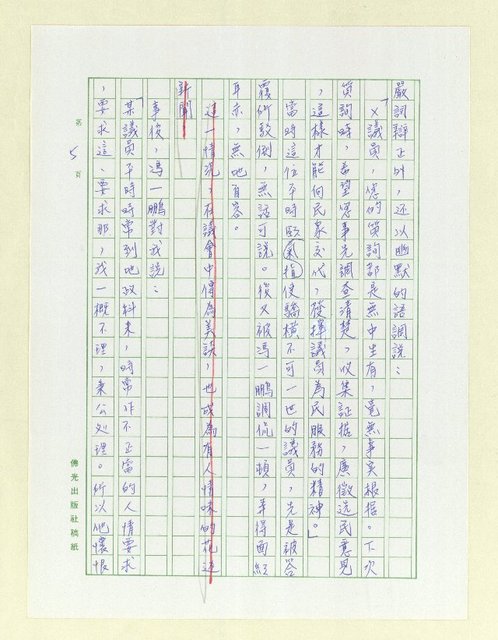 嚴詞辯正外，還以幽默的語調說：
「×議員，您的質詢都是無中生有，毫無事實根據。下次
質詢時，希望您事先調查清楚，收集証据，廣徵選民意見
，這樣才能向民眾交代，發揮議員為民服務的精神。」
當時這位平時頤氣指使驕橫不可一世的議員，先是被答
覆所駁倒，無話可說。後又被馮一鵬調侃一頓，弄得面紅
耳赤，無地自容。
這一情況，在議會中傳為美談，也成為有人情味的花邊
新聞
事後，馮一鵬對我說：
「某議員平時時常到地政科來，時常作不正當的人情要求
，要求這、要求那，我一概不理，秉公處理。所以他懷恨
第 5 頁
佛光出版社稿紙